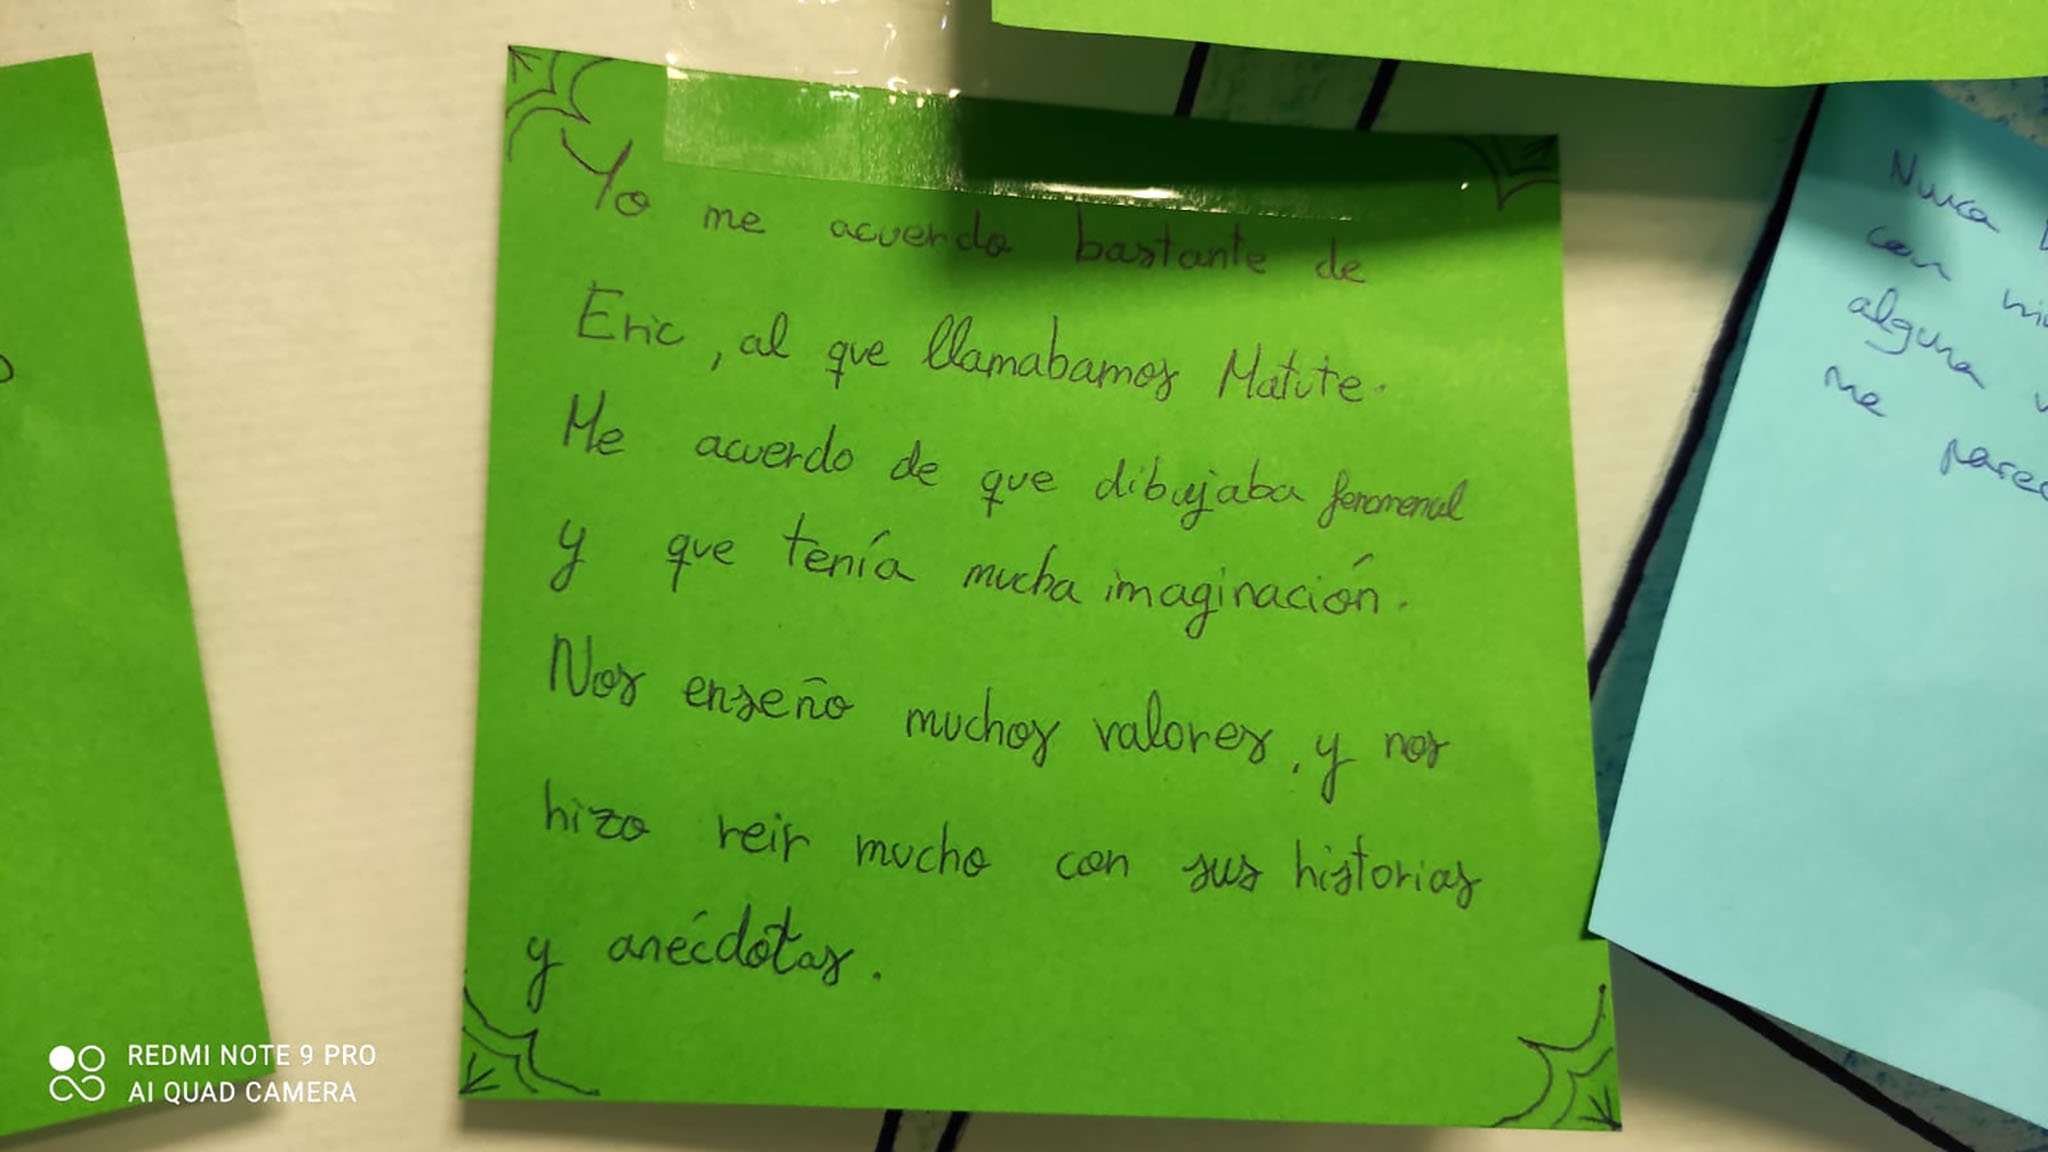 Yo me acuerdo bastante de
Eric, al que llamabamos Matute.
Me acuerdo de que dibujaba fenomenal
y que tenía mucha imaginación.
Nos enseño muchos valores, y nos
hizo reir mucho con sus historias
y anécdotas.
Nunca
con
alguna
me
REDMI NOTE 9 PRO
AI QUAD CAMERA